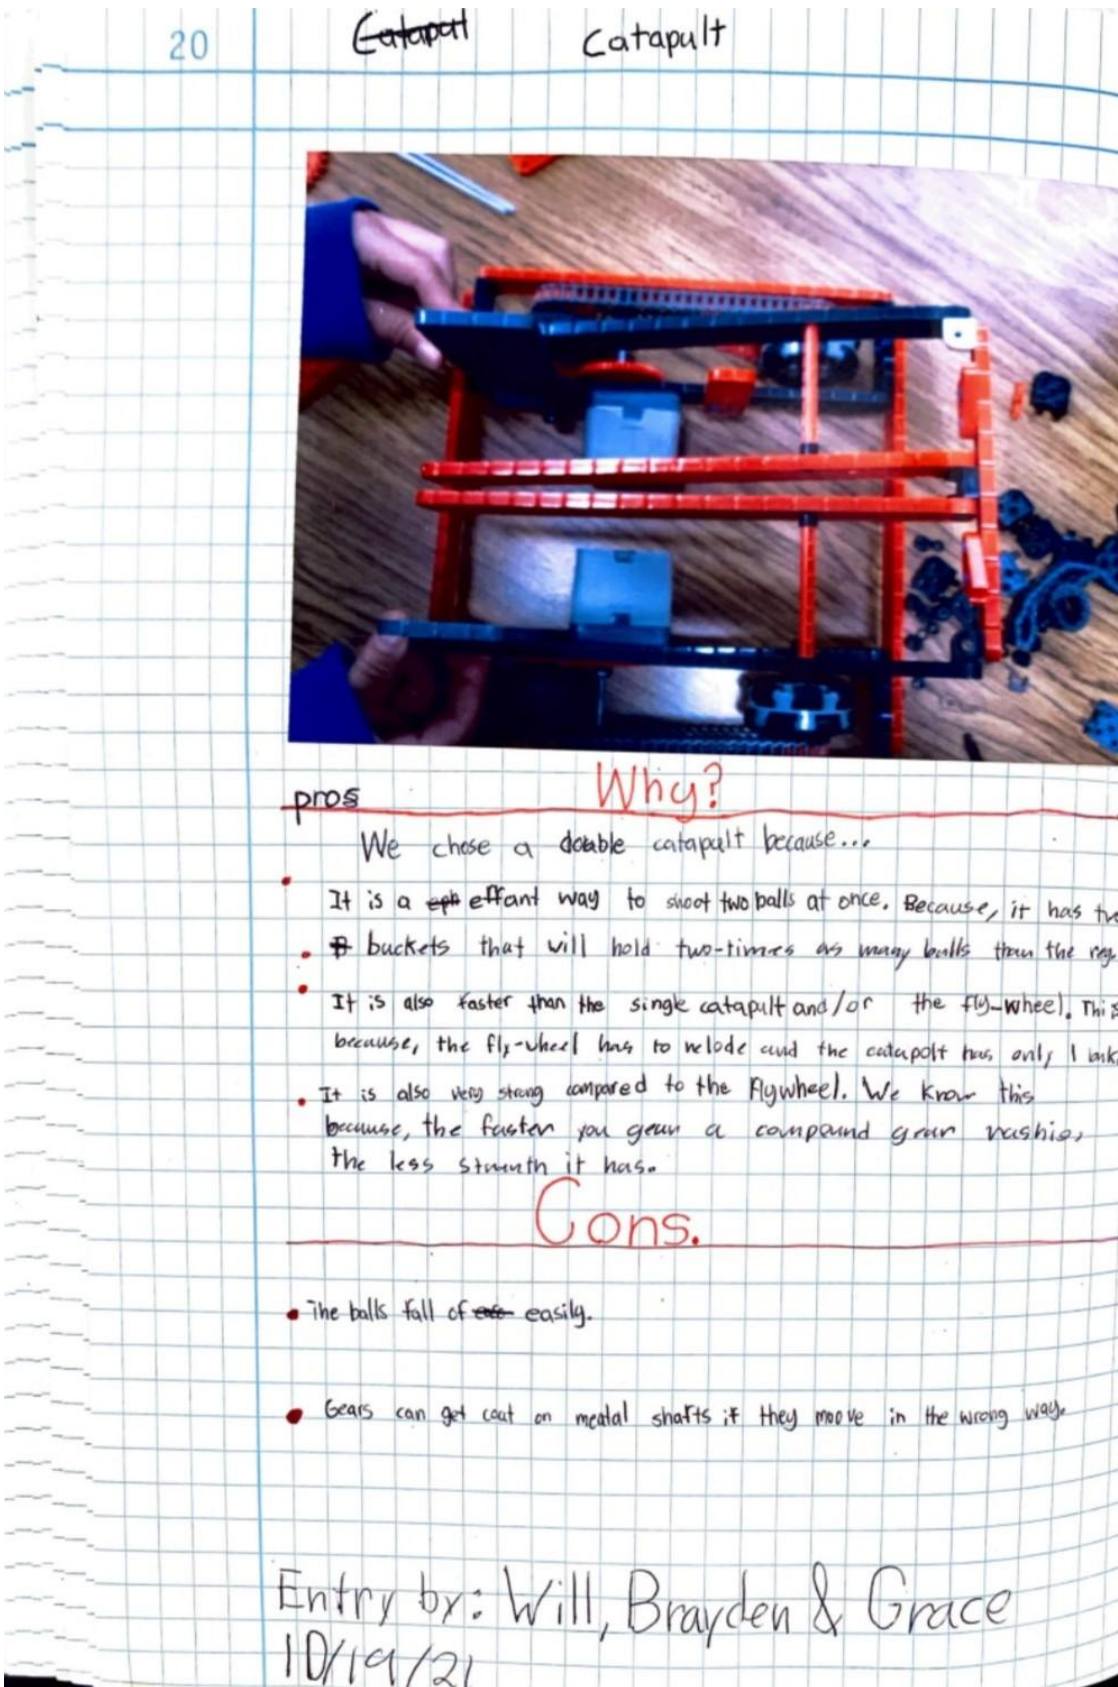 20 Catapul Catapult
pros Why?
We chose a double catapult because...
It is a eph effant way to shoot two balls at once. Because, it has tw
B buckets that will hold two-times as many balls than the reg
It is also faster than the single catapult and/or the fly-wheel. This
because, the fly-wheel has to relode and the catapolt has only 1
It is also very strong compared to the Flywheel. We know this
because, the faster you gear a compound gear rashio,
the less strunth it has.
Cons.
The balls fall of eas easily.
Gears can get caut on meatal shafts if they moove in the wrong way.
Entry by: Will, Brayden & Grace
10/19/21